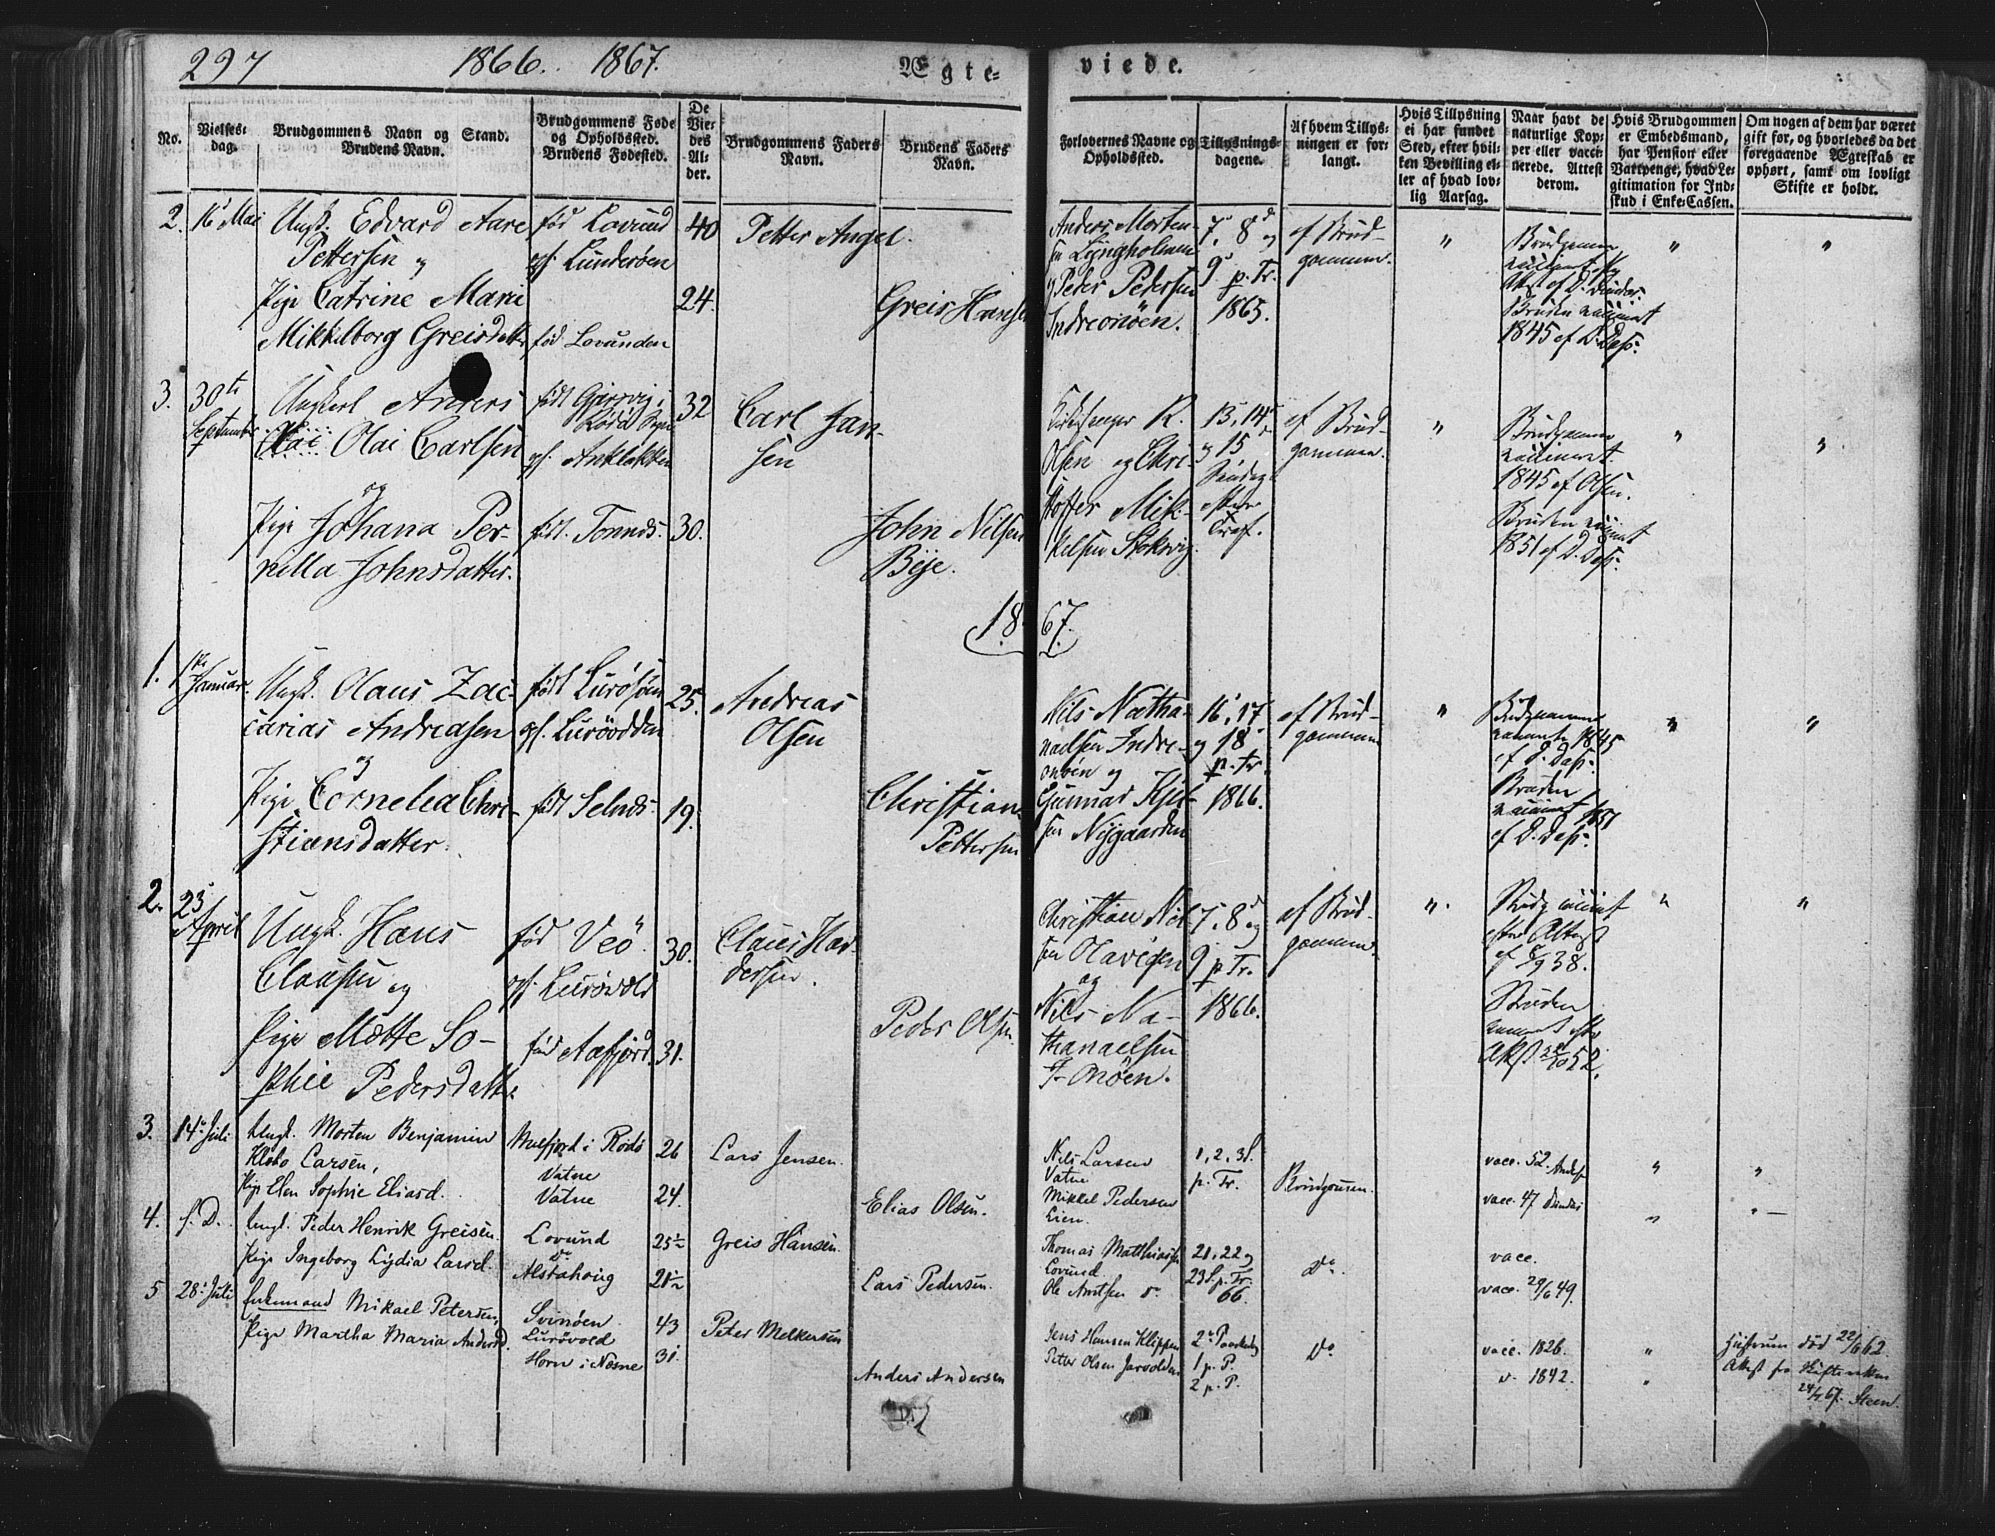 297 1866. 1867. Ægte= viede.
No.
Vielses-
dag.
Brudgommens Navn og Stand.
Brudens Navn.
Brudgommens Føde
og Opholdssted.
Brudens Fødested.
De
Vie-
des
Al-
der.
Brudgommens Faders
Navn.
Brudens Faders
Navn.
Forlovernes Navne og
Opholdssted.
Tillysnings-
dagene.
Af hvem Tillys-
ningen er for-
langt.
Hvis Tillysning
ei har fundet
Sted, efter hvil-
ken Bevilling el-
ler af hvad lov-
lig Aarsag.
Naar havt de
naturlige Kop-
per eller vacci-
nerede. Attest
derom.
Hvis Brudgommen
er Embedsmand,
har Pension eller
Vartpenge, hvad Le-
gitimation for Ind-
skud i Enke-Cassen.
Om nogen af dem har været
gift før, og hvorledes da det
foregaaende Ægteskab er
ophørt, samt om lovligt
Skifte er holdt.
2. 16 Mai
Ungk. Edvard Aare
Pettersen og
Pige Catrine Marie
Mikkelborg Greisdatter
fød Lovund
Lunderøen
fød Lovunden
40
24.
Petter Angel.
Greis Hansen
Anders Morten-
sen Lyngholmen
og Peder Pedersen
Indreonöen.
7, 8 og
9 p. Tr.
1865.
af Brud-
gommen.
"
Brudgommen
Bruden vaccineret
1845 af D. Dass.
"
"
3. 30te
September
Ungkarl Anders
Olai Olai Carlsen
og
Pige Johana Per-
nella Johnsdatter.
født
født. Tonnes.
32
30.
Carl Jan-
sen
John Nilsen
Beje.
Kirkesanger R.
Olsen og Chri-
stoffer Mik-
kelsen Stokvig.
13, 14
og 15
Søndag
efter
Tref.
af Brud-
gommen.
"
Brudgommen
vaccineret
1845 af Olsen.
Bruden vaccineret
1851 af D. Dass.
"
"
1867.
1. 1ste
Januar.
Ungk. Olaus Zac-
carias Andreasen
og
Pige Cornelia Chri-
stiansdatter.
født Lurøsøen
Lurøodden
født Selnes
25.
19.
Andreas
Olsen
Christian
Pettersen
Nils Natha-
naelsen Indre-
onöen og
Gunnar
Nygaarden
16, 17
og 18
p. Tr.
1866.
af Brud-
gommen
"
Brudgommen
1845
af D. Dass.
Bruden
vaccineret 1851
af D. Dass.
"
"
2. 23
April
Ungk. Hans
Clausen og
Pige Mette So-
phie Pedersdatter
fød Veö.
Lurøvold
fød Aafjord
30.
31.
Claus Han-
dersen.
Peder Olsen
Christian Nil-
sen Olavigen
og
Nils Na-
thanaelsen
I-Onöen.
7, 8 og
9 p. Tr.
1866.
af Brud-
gommen.
".
Brudg vaccineret
efter Attest
38.
Bruden
52.
"
"
3. 14. Juli
Ungk. Morten Benjamin
Carsen,
Pige Elen Sophie Eliasd.
i Rødø
Vatne
Vatne
26
24.
Lars Jensen.
Elias Olsen.
Nils Larsen
Vatne
Mikkel Pedersen
Lien.
1, 2, 3 S.
p. Tr.
Brudgommen.
vacc. 52.
vacc. 47
"
"
4. s. D.
Ungk. Peder Henrik Greisen.
Pige Ingeborg Lydia Larsd.
Lovund
Do
Alstahoug
25½
21½
Greis Hansen.
Lars Pedersen.
Thomas Matthiasen
Lovund.
Ole Arntsen
21, 22 og
23 S. p. Tr.
66.
Do.
vacc.
vacc. 49.
"
5 28. Juli
Enkemand Mikael Petersen,
Pige Martha Maria Andersd.
Svinøen
Lurøvold
Horn i
43
31.
Peter Melkersen
Anders Andersen
Jens Hansen Klippen
Petter Olsen
1 p. P.
2 p. P.
Do
vacc. 1826.
1842.
"
"
Hustruen død 22/6 62.
Attest fra Skifteretten
67. Steen.